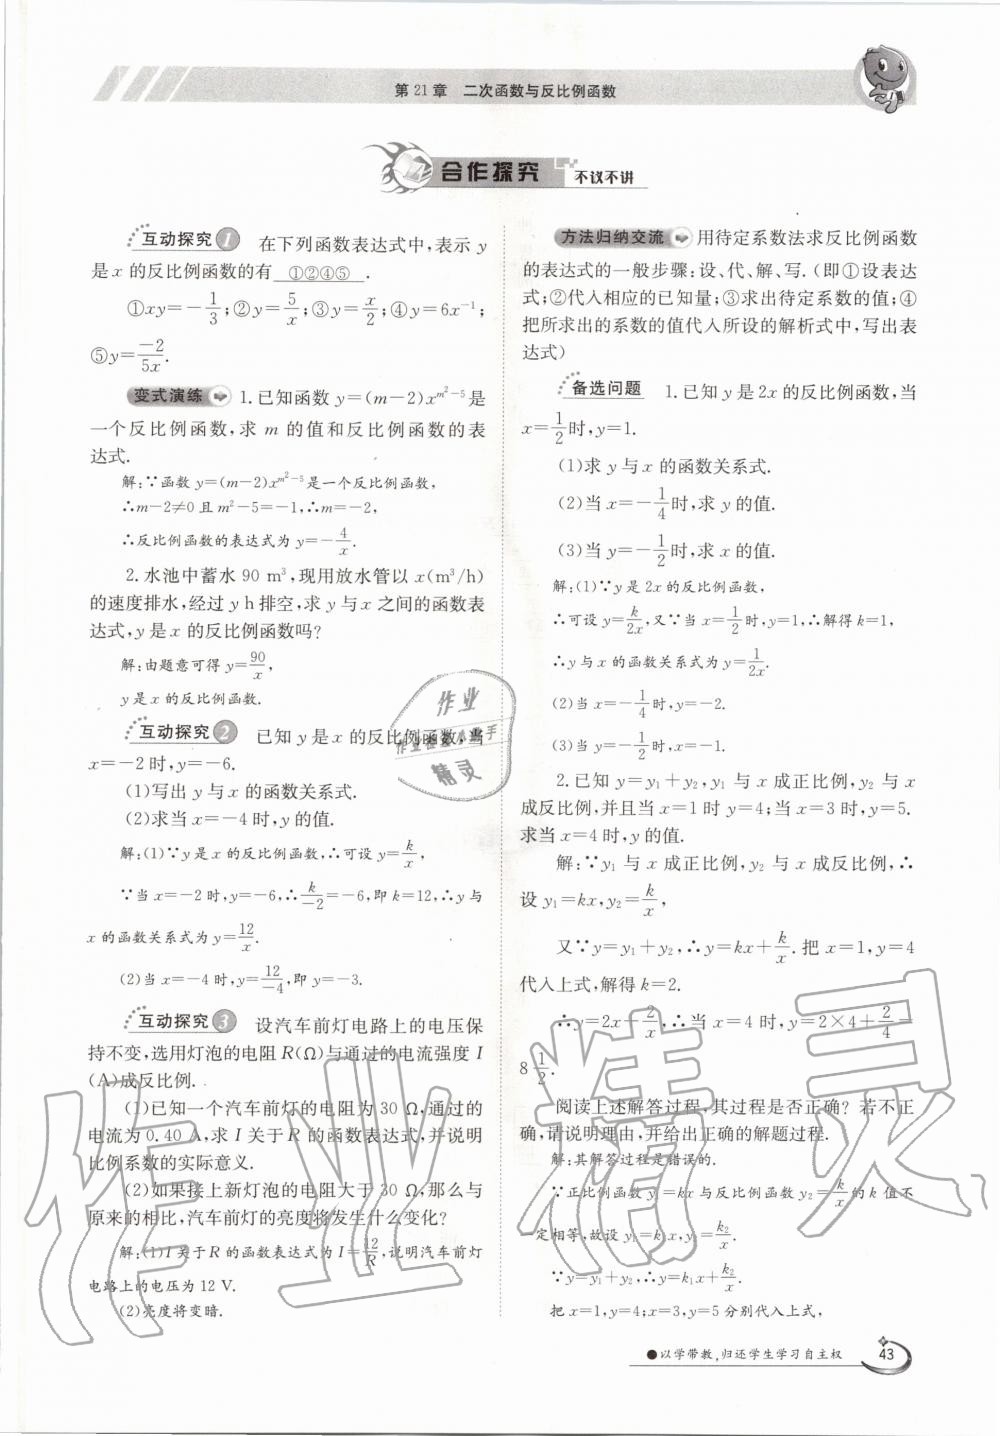 第21章 二次函数与反比例函数
合作探究 不议不讲
互动探究1 在下列函数表达式中,表示 y
是 x 的反比例函数的有 ①②④⑤ .
①xy=-1/3;②y=5/x;③y=x/2;④y=6x⁻¹;
⑤y=-2/5x.
变式演练 1.已知函数 y=(m-2)x^{m²-5}是
一个反比例函数,求 m 的值和反比例函数的表
达式.
解:∵函数 y=(m-2)x^{m²-5}是一个反比例函数,
∴m-2≠0 且 m²-5=-1,∴m=-2,
∴反比例函数的表达式为 y=-4/x.
2.水池中蓄水 90 m³,现用放水管以 x(m³/h)
的速度排水,经过 y h排空,求 y 与 x 之间的函数表
达式,y 是 x 的反比例函数吗?
解:由题意可得 y=90/x,
y 是 x 的反比例函数.
互动探究2 已知 y 是 x 的反比例函数,当
x=-2 时,y=-6.
(1)写出 y 与 x 的函数关系式.
(2)求当 x=-4 时,y 的值.
解:(1)∵y 是 x 的反比例函数,∴可设 y=k/x,
∵当 x=-2 时,y=-6,∴k/-2=-6,即 k=12,∴y 与
x 的函数关系式为 y=12/x.
(2)当 x=-4 时,y=12/-4,即 y=-3.
互动探究3 设汽车前灯电路上的电压保
持不变,选用灯泡的电阻 R(Ω)与通过的电流强度 I
(A)成反比例.
(1)已知一个汽车前灯的电阻为 30 Ω,通过的
电流为 0.40 A,求 I 关于 R 的函数表达式,并说明
比例系数的实际意义.
(2)如果接上新灯泡的电阻大于 30 Ω,那么与
原来的相比,汽车前灯的亮度将发生什么变化?
解:(1)I 关于 R 的函数表达式为 I=12/R,说明汽车前灯
电路上的电压为 12 V.
(2)亮度将变暗.
方法归纳交流 用待定系数法求反比例函数
的表达式的一般步骤:设、代、解、写.(即①设表达
式;②代入相应的已知量;③求出待定系数的值;④
把所求出的系数的值代入所设的解析式中,写出表
达式)
备选问题 1.已知 y 是 2x 的反比例函数,当
x=1/2时,y=1.
(1)求 y 与 x 的函数关系式.
(2)当 x=-1/4时,求 y 的值.
(3)当 y=-1/2时,求 x 的值.
解:(1)∵y 是 2x 的反比例函数,
∴可设 y=k/2x,又∵当 x=1/2时,y=1,∴解得 k=1,
∴y 与 x 的函数关系式为 y=1/2x.
(2)当 x=-1/4时,y=-2.
(3)当 y=-1/2时,x=-1.
2.已知 y=y₁+y₂,y₁ 与 x 成正比例,y₂ 与 x
成反比例,并且当 x=1 时 y=4;当 x=3 时,y=5.
求当 x=4 时,y 的值.
解:∵y₁ 与 x 成正比例,y₂ 与 x 成反比例,∴
设 y₁=kx,y₂=k/x,
又∵y=y₁+y₂,∴y=kx+k/x.把 x=1,y=4
代入上式,解得 k=2.
∴y=2x+2/x,∴当 x=4 时,y=2×4+2/4=
8 1/2.
阅读上述解答过程,其过程是否正确?若不正
确,请说明理由,并给出正确的解题过程.
解:其解答过程是错误的.
∵正比例函数 y₁=kx 与反比例函数 y₂=k/x的 k 值不
一定相等,故设 y₁=k₁x,y₂=k₂/x.
∵y=y₁+y₂,∴y=k₁x+k₂/x.
把 x=1,y=4;x=3,y=5 分别代入上式,
●以学带教,归还学生学习自主权 43
作业
作业检查小帮手
精灵
作业精灵